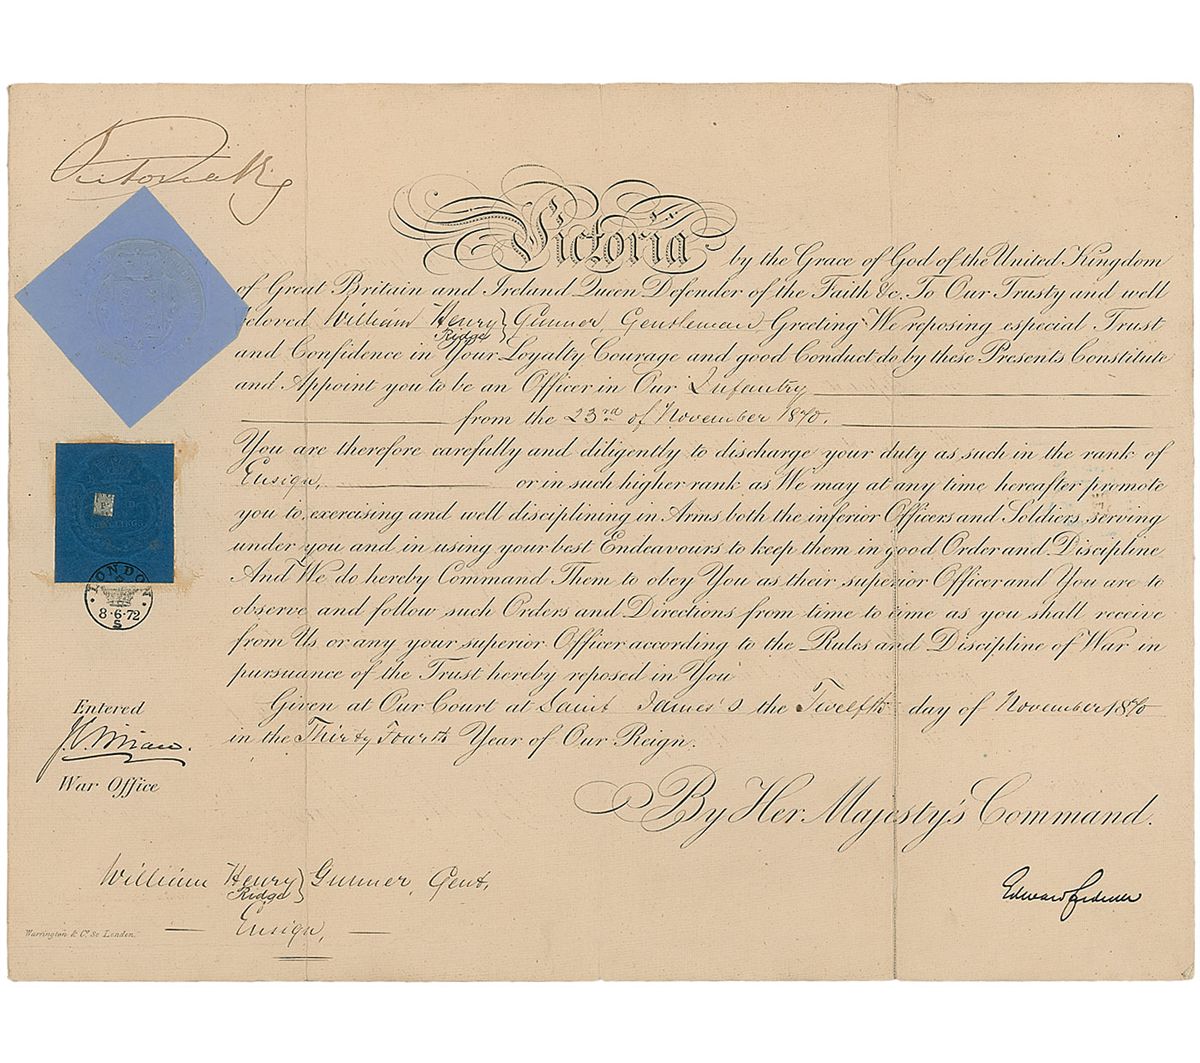 Victoria R
Victoria by the Grace of God of the United Kingdom
of Great Britain and Ireland Queen Defender of the Faith &c. To Our Trusty and well
beloved William Henry Ridge} Gunner, Gentleman, Greeting We reposing especial Trust
and Confidence in Your Loyalty Courage and good Conduct do by these Presents Constitute
and Appoint you to be an Officer in Our Infantry
from the 23rd of November 1870.
You are therefore carefully and diligently to discharge your duty as such in the rank of
Ensign, or in such higher rank as We may at any time hereafter promote
you to, exercising and well disciplining in Arms both the inferior Officers and Soldiers serving
under you and in using your best Endeavours to keep them in good Order and Discipline
And We do hereby Command Them to obey You as their superior Officer and You are to
observe and follow such Orders and Directions from time to time as you shall receive
from Us or any your superior Officer according to the Rules and Discipline of War in
pursuance of the Trust hereby reposed in You
Given at Our Court at Saint James's the Twelfth day of November 1870
in the Thirty Fourth Year of Our Reign.
By Her Majesty's Command.
LONDON
8·6·72
S
Entered
War Office
William Henry Ridge} Gunner, Gent.
Ensign,
Warrington & Co. Sc London.
Edward